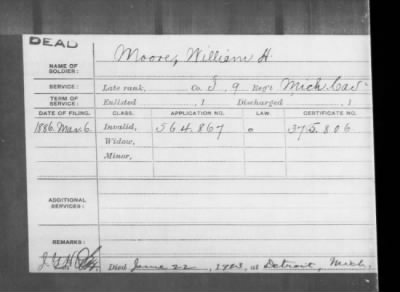 DEAD
NAME OF SOLDIER: Moore, William H.
SERVICE: Late rank, Co. I, 9 Reg't Mich. Cav
TERM OF SERVICE: Enlisted , 1 Discharged , 1
DATE OF FILING. CLASS. APPLICATION NO. LAW. CERTIFICATE NO.
1886. Mar. 6. Invalid, 564.867 375.806
Widow,
Minor,
ADDITIONAL SERVICES:
REMARKS:
Died June 22, 1923, at Detroit, Mich.